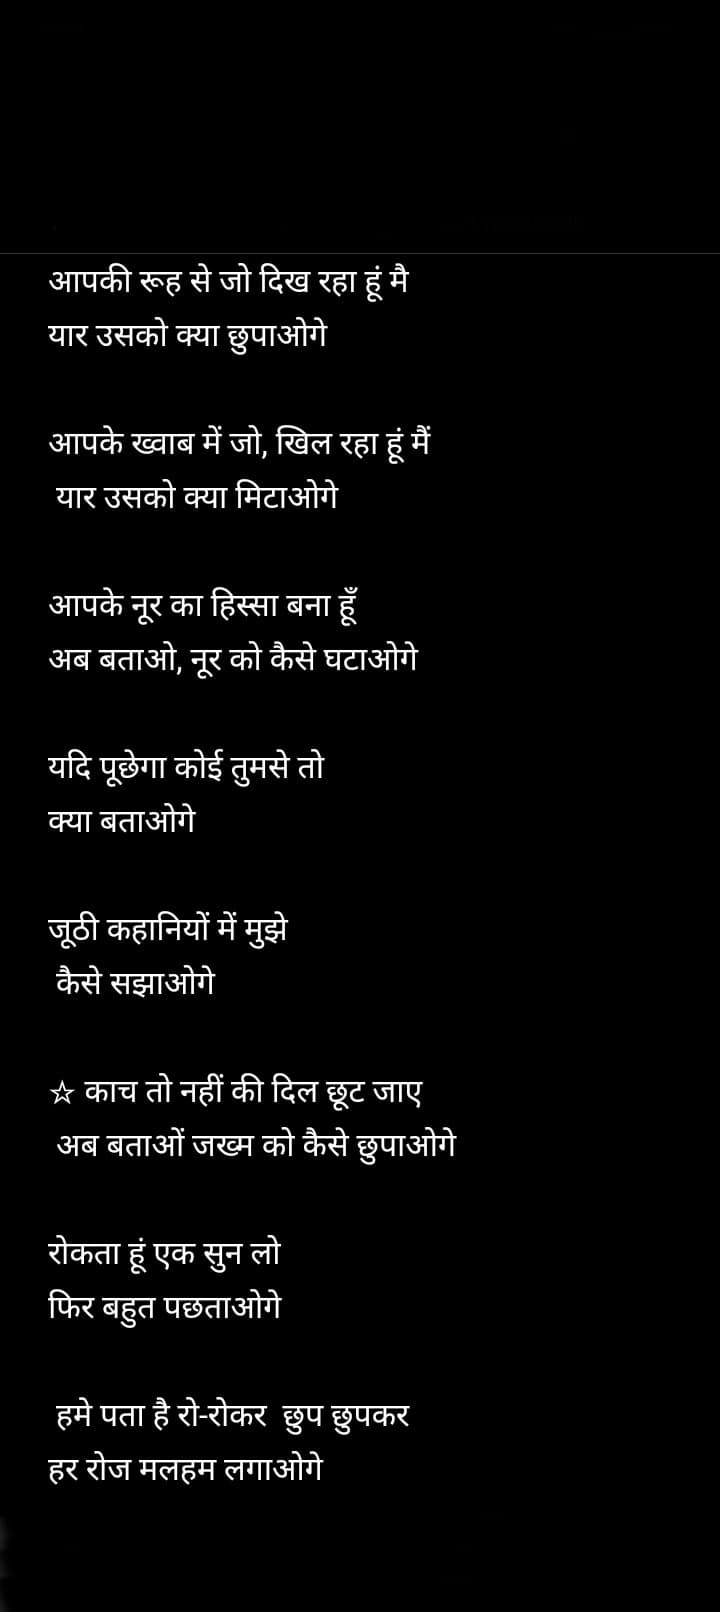 आपकी रूह से जो दिख रहा हूं मै
यार उसको क्या छुपाओगे
आपके ख्वाब में जो, खिल रहा हूं मैं
यार उसको क्या मिटाओगे
आपके नूर का हिस्सा बना हूँ
अब बताओ, नूर को कैसे घटाओगे
यदि पूछेगा कोई तुमसे तो
क्या बताओगे
जूठी कहानियों में मुझे
कैसे सझाओगे
☆ काच तो नहीं की दिल छूट जाए
अब बताओं जख्म को कैसे छुपाओगे
रोकता हूं एक सुन लो
फिर बहुत पछताओगे
हमे पता है रो-रोकर छुप छुपकर
हर रोज मलहम लगाओगे